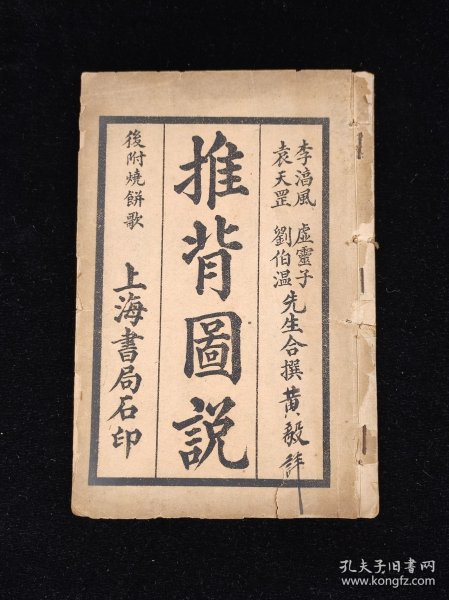 李淳風 虛靈子
袁天罡 劉伯温
先生合撰黄毅詳
推背圖説
後附燒餅歌
上海書局石印
孔夫子旧书网
www.kongfz.com